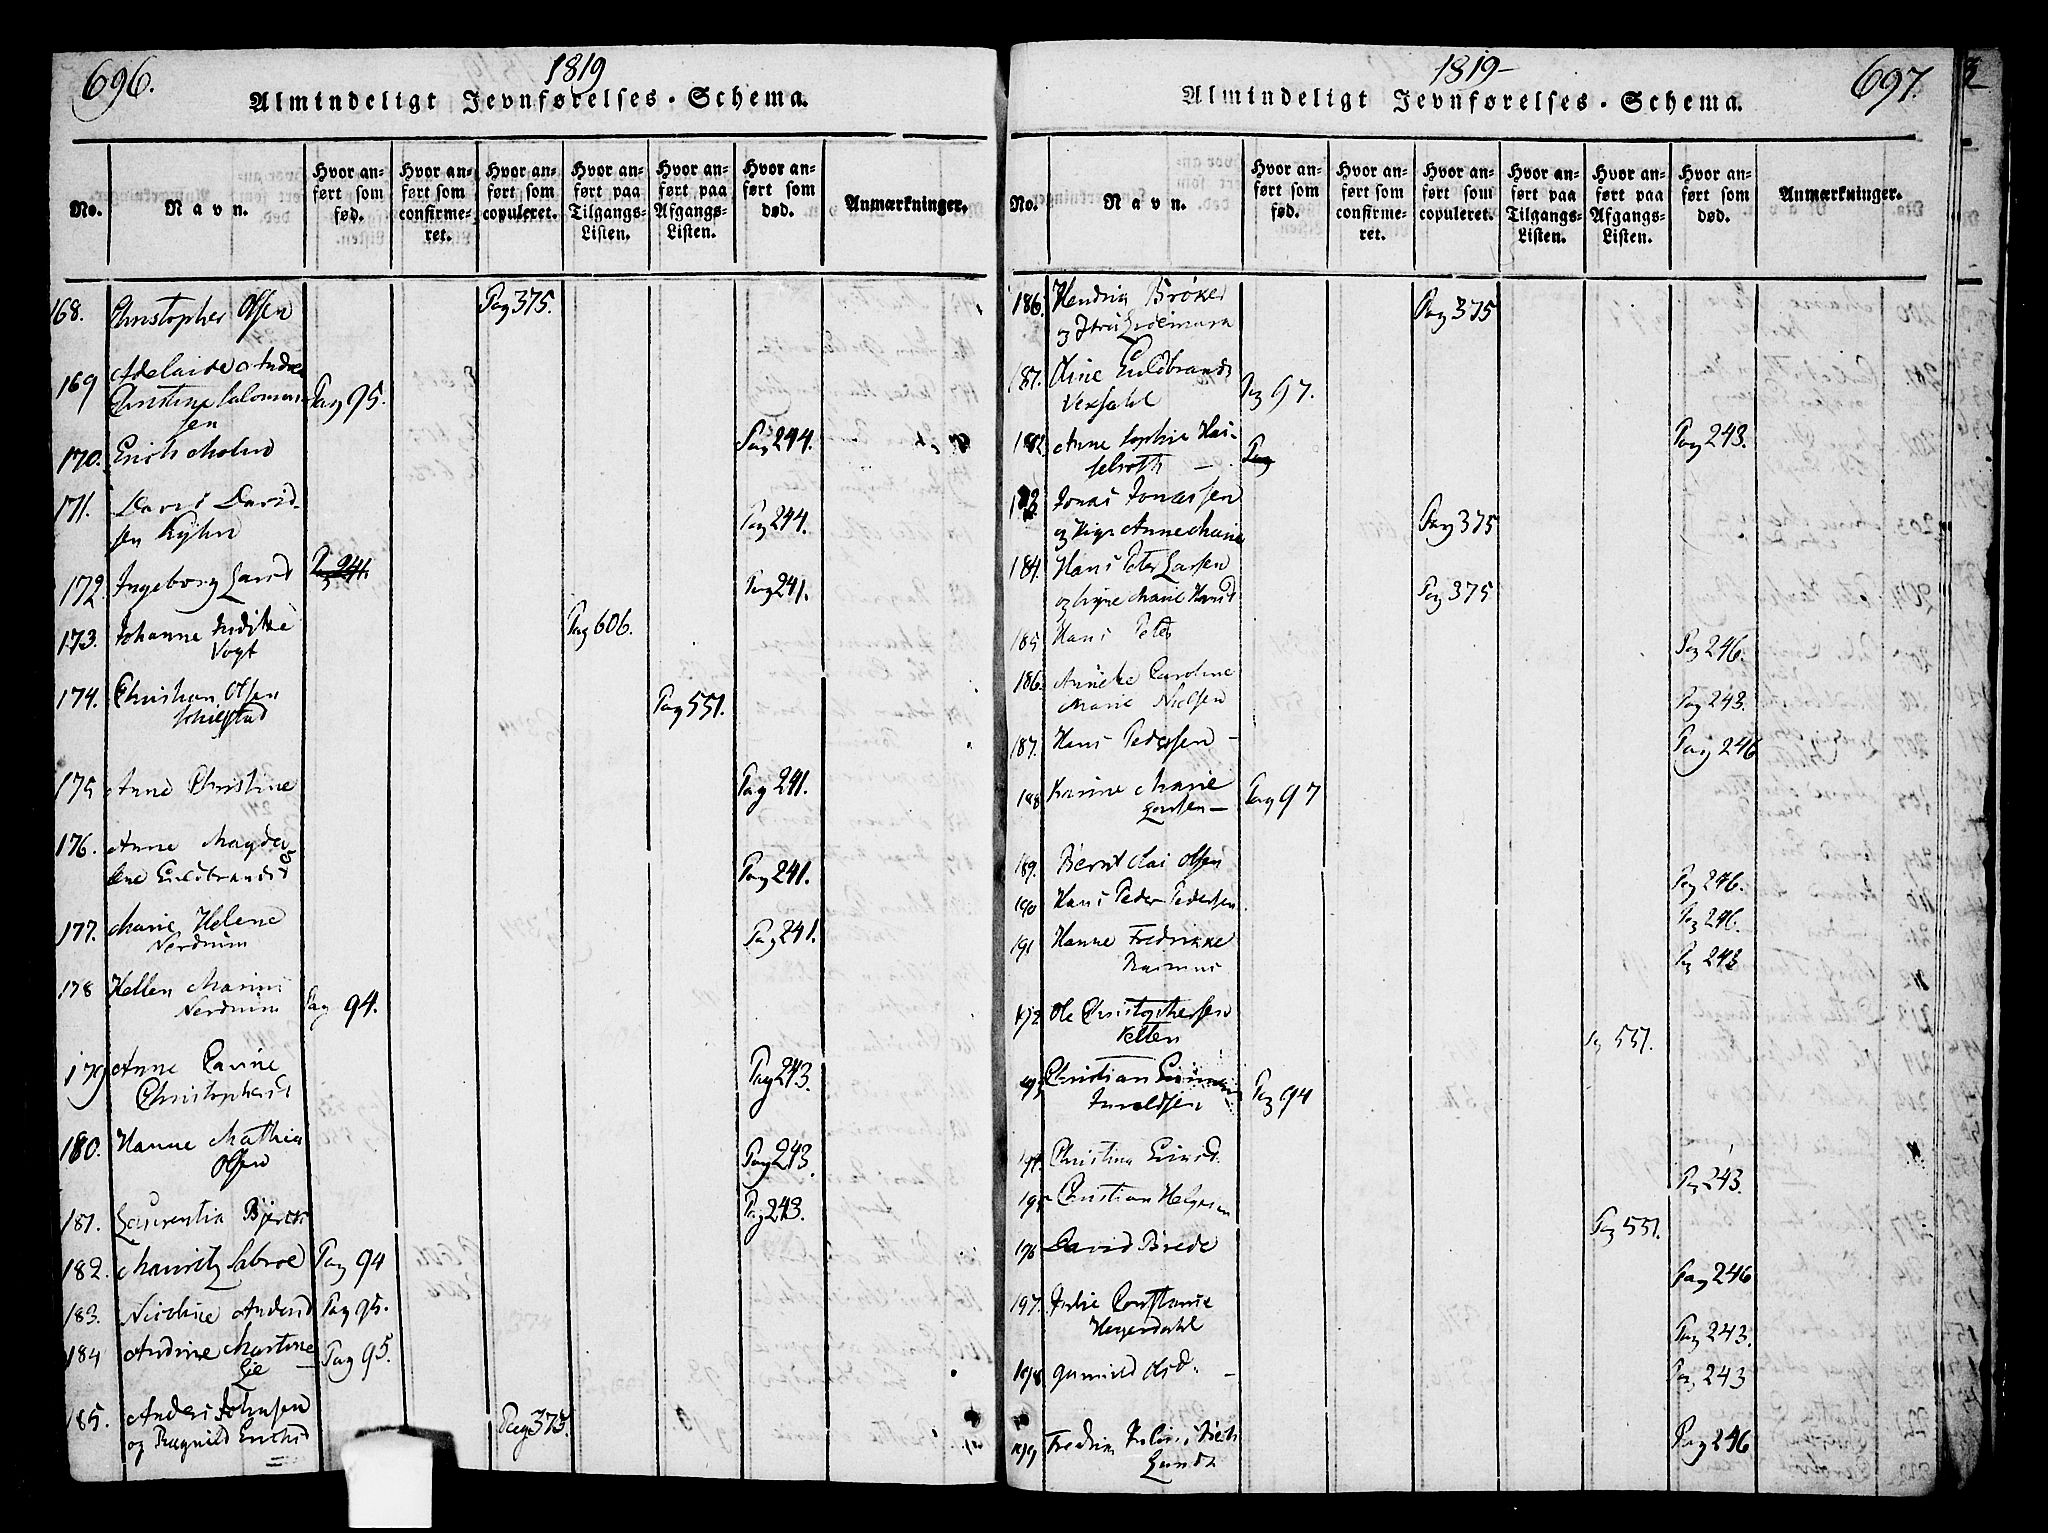 696.
1819
Almindeligt Jevnførelses-Schema.
No.
Navn.
Hvor anført som fød.
Hvor anført som confirmeret.
Hvor anført som copuleret.
Hvor anført paa Tilgangs-Listen.
Hvor anført paa Afgangs-Listen.
Hvor anført som død.
Anmærkninger.
168. Christopher Olsen Pag 375.
169 Adelaide Andrea
Christine Salomon- Pag 95.
sen
170. Erich Holm Pag 244.
171. David David-
sen Kyhn Pag 244.
172. Ingeborg Larsd Pag 241. Pag 241.
173. Johanne
Vogt Pag 606.
174. Christian Olsen
Pag 551.
175 Anne Christine Pag 241.
176. Anne Magda
lene Guldbrandsd Pag 241.
177. Marie Helene
Nerdrum Pag 241.
178 Hellen
Nerdrum Pag 94.
179 Anne Carine
Christophersd Pag 243.
180. Hanne Mathia
Olsen Pag 243.
181. Laurentia Bjerck Pag 243.
182. Mauritz Labroe Pag 94
183. Nicoline Andersd Pag 95.
184 Andine Martine
Lie Pag 95.
185. Anders Johnsen
og Ragnild Erichsd Pag 375.
1819-
697.
Almindeligt Jevnførelses-Schema.
No.
Navn.
Hvor anført som fød.
Hvor anført som confirmeret.
Hvor anført som copuleret.
Hvor anført paa Tilgangs-Listen.
Hvor anført paa Afgangs-Listen.
Hvor anført som død.
Anmærkninger.
186. Hendrich Brøker
og Pag 375
187. Oline Guldbrands
Pag 97.
182 Anne Sophie Has-
selroth - Pag Pag 243.
183 Jonas Jonassen
og Pige Anne Marie Pag 375
184. Hans Peter Larsen
og Signe Marie Hansd Pag 375
185 Hans Peter Pag 246.
186. Anneke Caroline
Marie Nielsen Pag 243.
187. Hans Pedersen - Pag 246
188 Karine Marie
Jensen - Pag 97
189. Bernt Olai Olsen Pag 246.
190 Hans Peder Pedersen Pag 246.
191 Hanne Fredrikke
Rasmus Pag 243
192 Ole Christophersen
Pag 551.
193 Christian
Pag 94
194. Christina Pag 243.
195 Christian Helgesen Pag 551.
196 David Brede Pag 246
197. Julie Constance
Heyerdahl Pag 243.
198. Gunnild Olsd. - Pag 243
199 Fredrich Julius
Lundt Pag 246